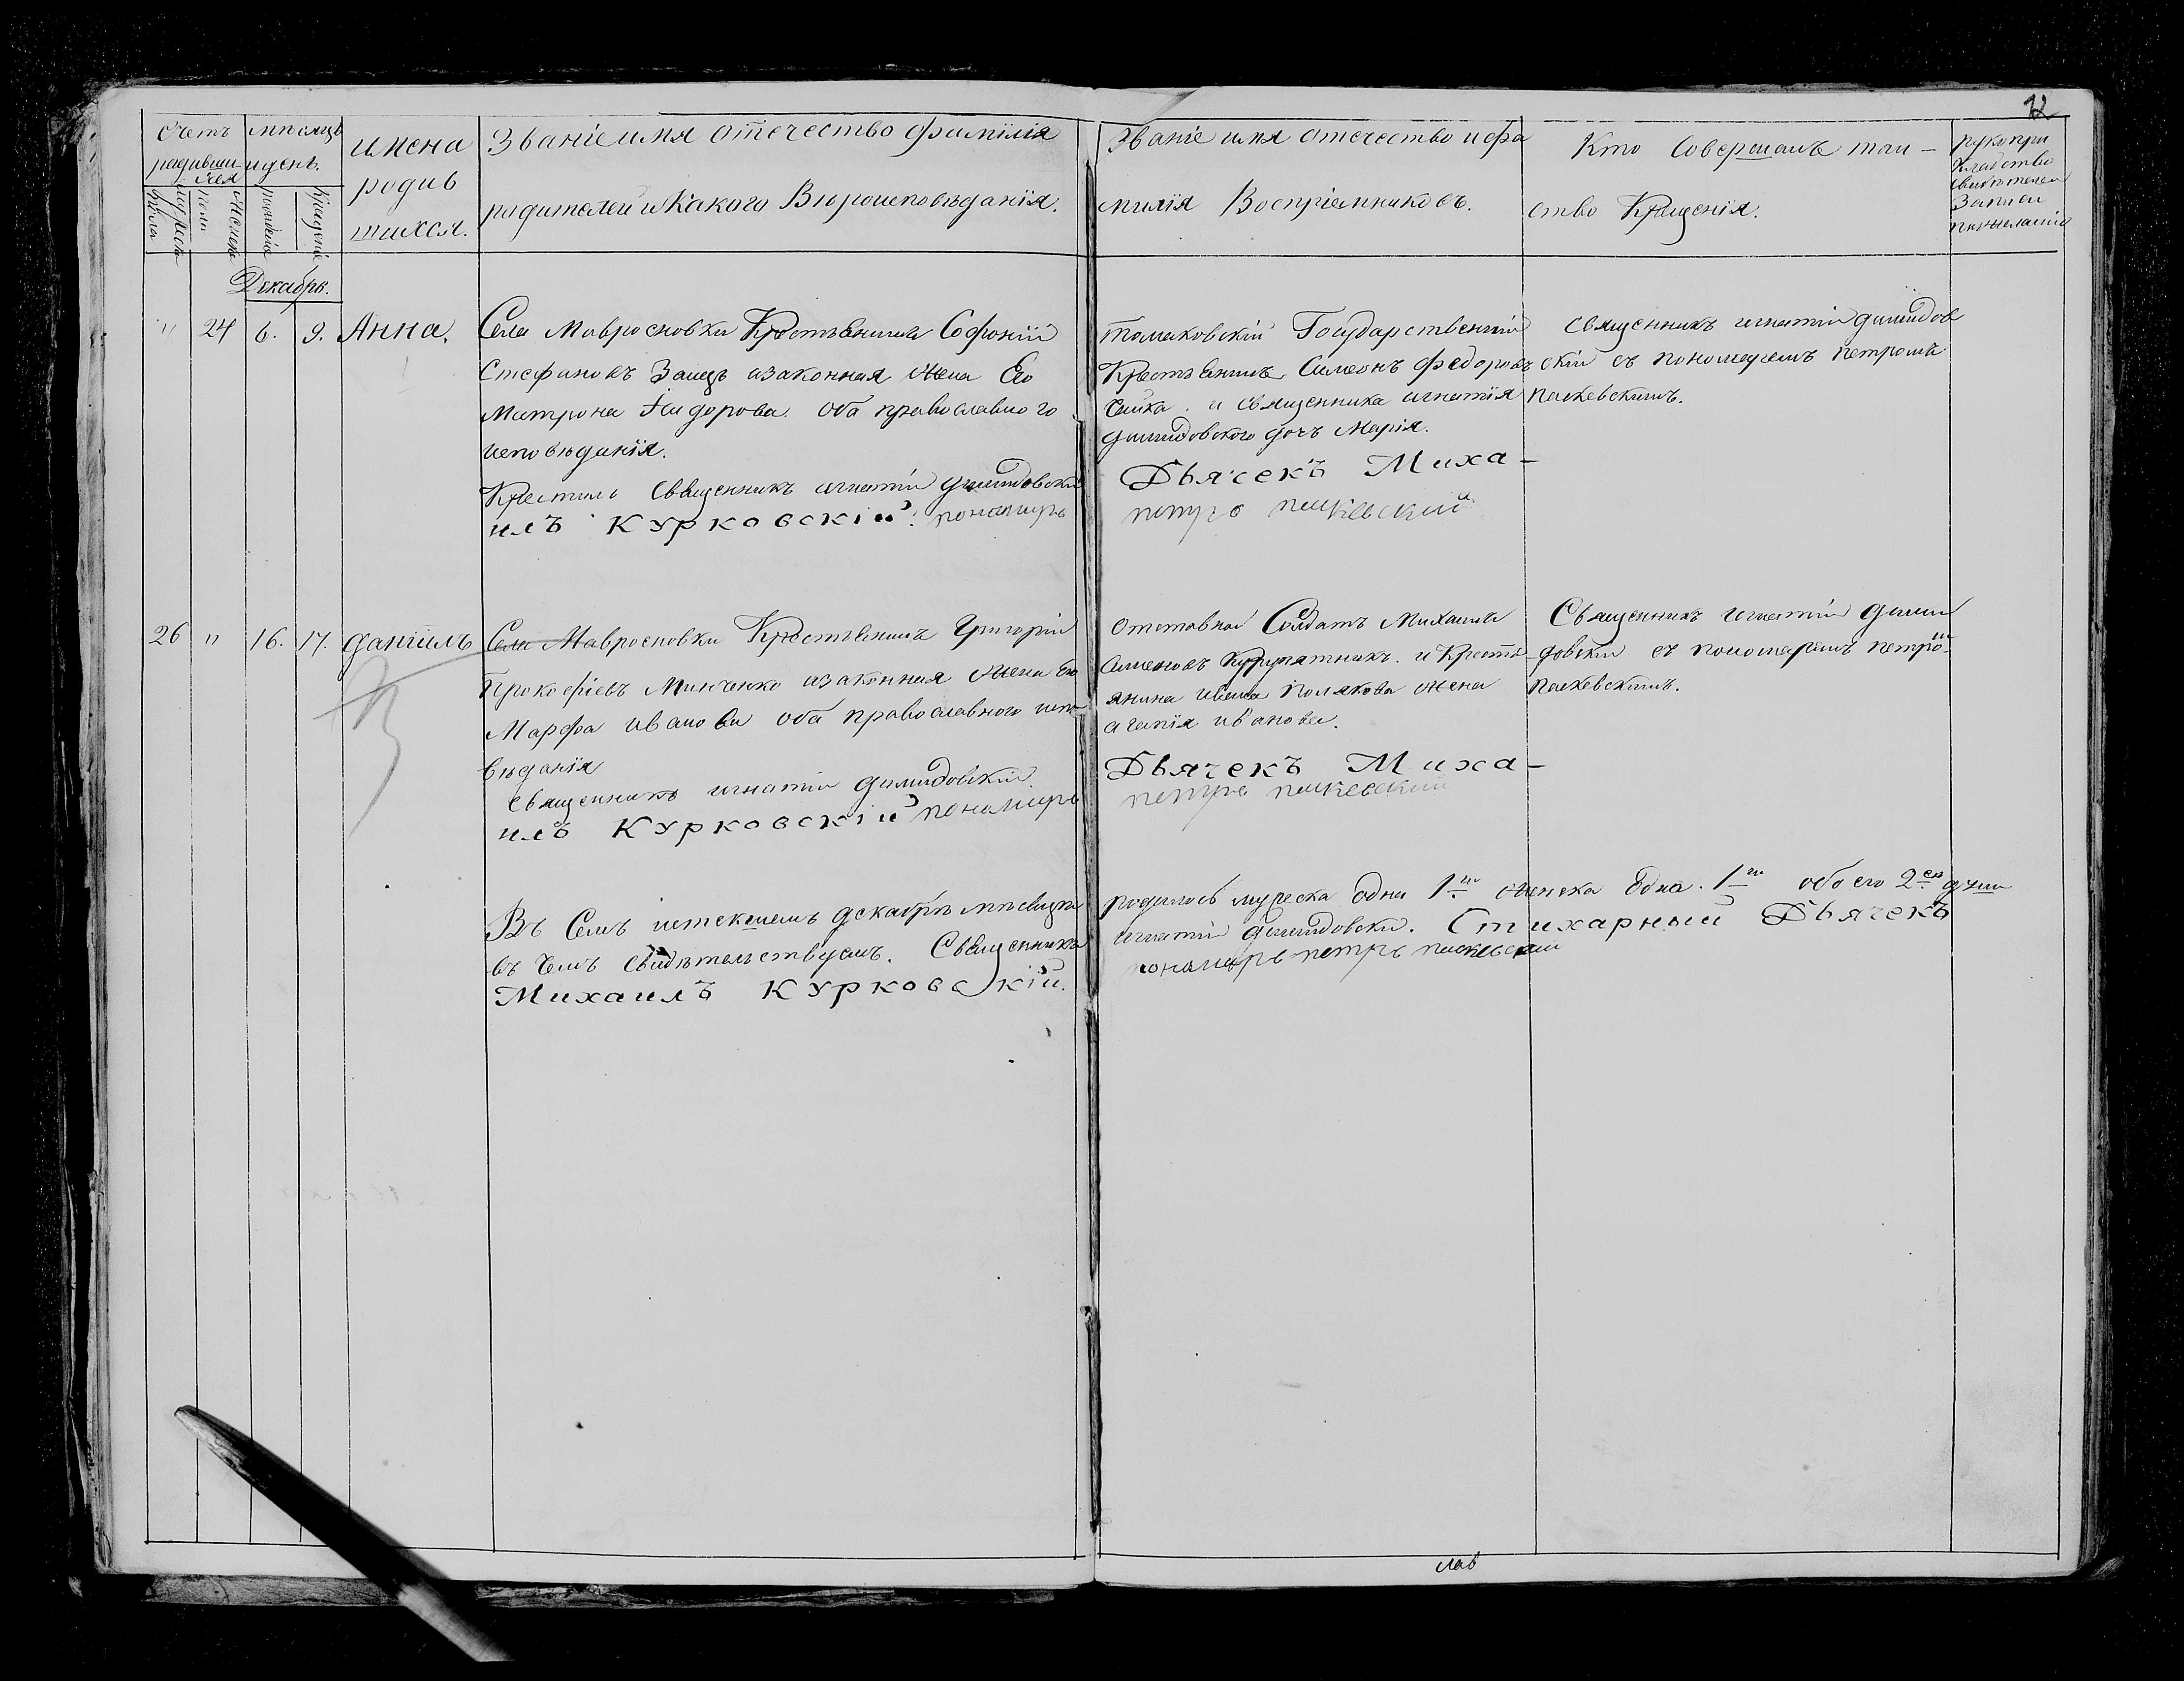 12
Счетъ
родивши
хся
мѣсяцъ
и день.
имена
родив
шихся.
Званіе имя отечество фамилія
родителей и Какого Вероисповѣданія.
Званіе имя отечество и фа
милія Воспріемниковъ.
Кто Совершалъ таи-
ство Крещенія.
рукопри
кладство
свидѣтелей
Записи
по желанію
мужеска
пола
женска
рожденіе
Крещеніе
Декабрь.
" 24 6. 9. Анна.
Села Мавросновки Крестьянинъ Софроній
Стефановъ Заецъ и законная жена Его
Матрона Сидорова. Оба православного
исповѣданія.
Крестилъ Священникъ игнатій демидовскій
илъ Курковскій. понамарь
томаковскій Государственный
Крестьянинъ Симеонъ федоровъ
Сайка. и священника игнатія
демидовского дочъ Марія.
Дьячекъ Миха-
петръ паскевский
священникъ игнатій демидов
скій съ пономаремъ петромъ
паскевскимъ.
26 " 16. 17. даніилъ
Села Мавросновки Крестьянинъ Григорій
Прокофіевъ Минченко и законная жена Его
Марфа иванова оба православного испо
вѣданія
священникъ игнатій демидовскій.
илъ Курковскій понамарь
отставной Солдатъ Михаилъ
Симеоновъ и Крестъ
янина ивана Полякова жена
агапія иванова.
Дьячекъ Миха-
петръ паскевский
Священникъ игнатій деми
довскій съ пономаремъ петромъ
паскевскимъ.
Въ Семъ истекшемъ декабрѣ мѣсяцѣ
родилось мужеска одна 1 женска одна. 1 обоего 2 души
въ чемъ свидѣтельствуемъ. Священникъ
игнатій демидовскій. Стихарный Дьячекъ
Михаилъ Курковскій.
понамарь петръ паскевский